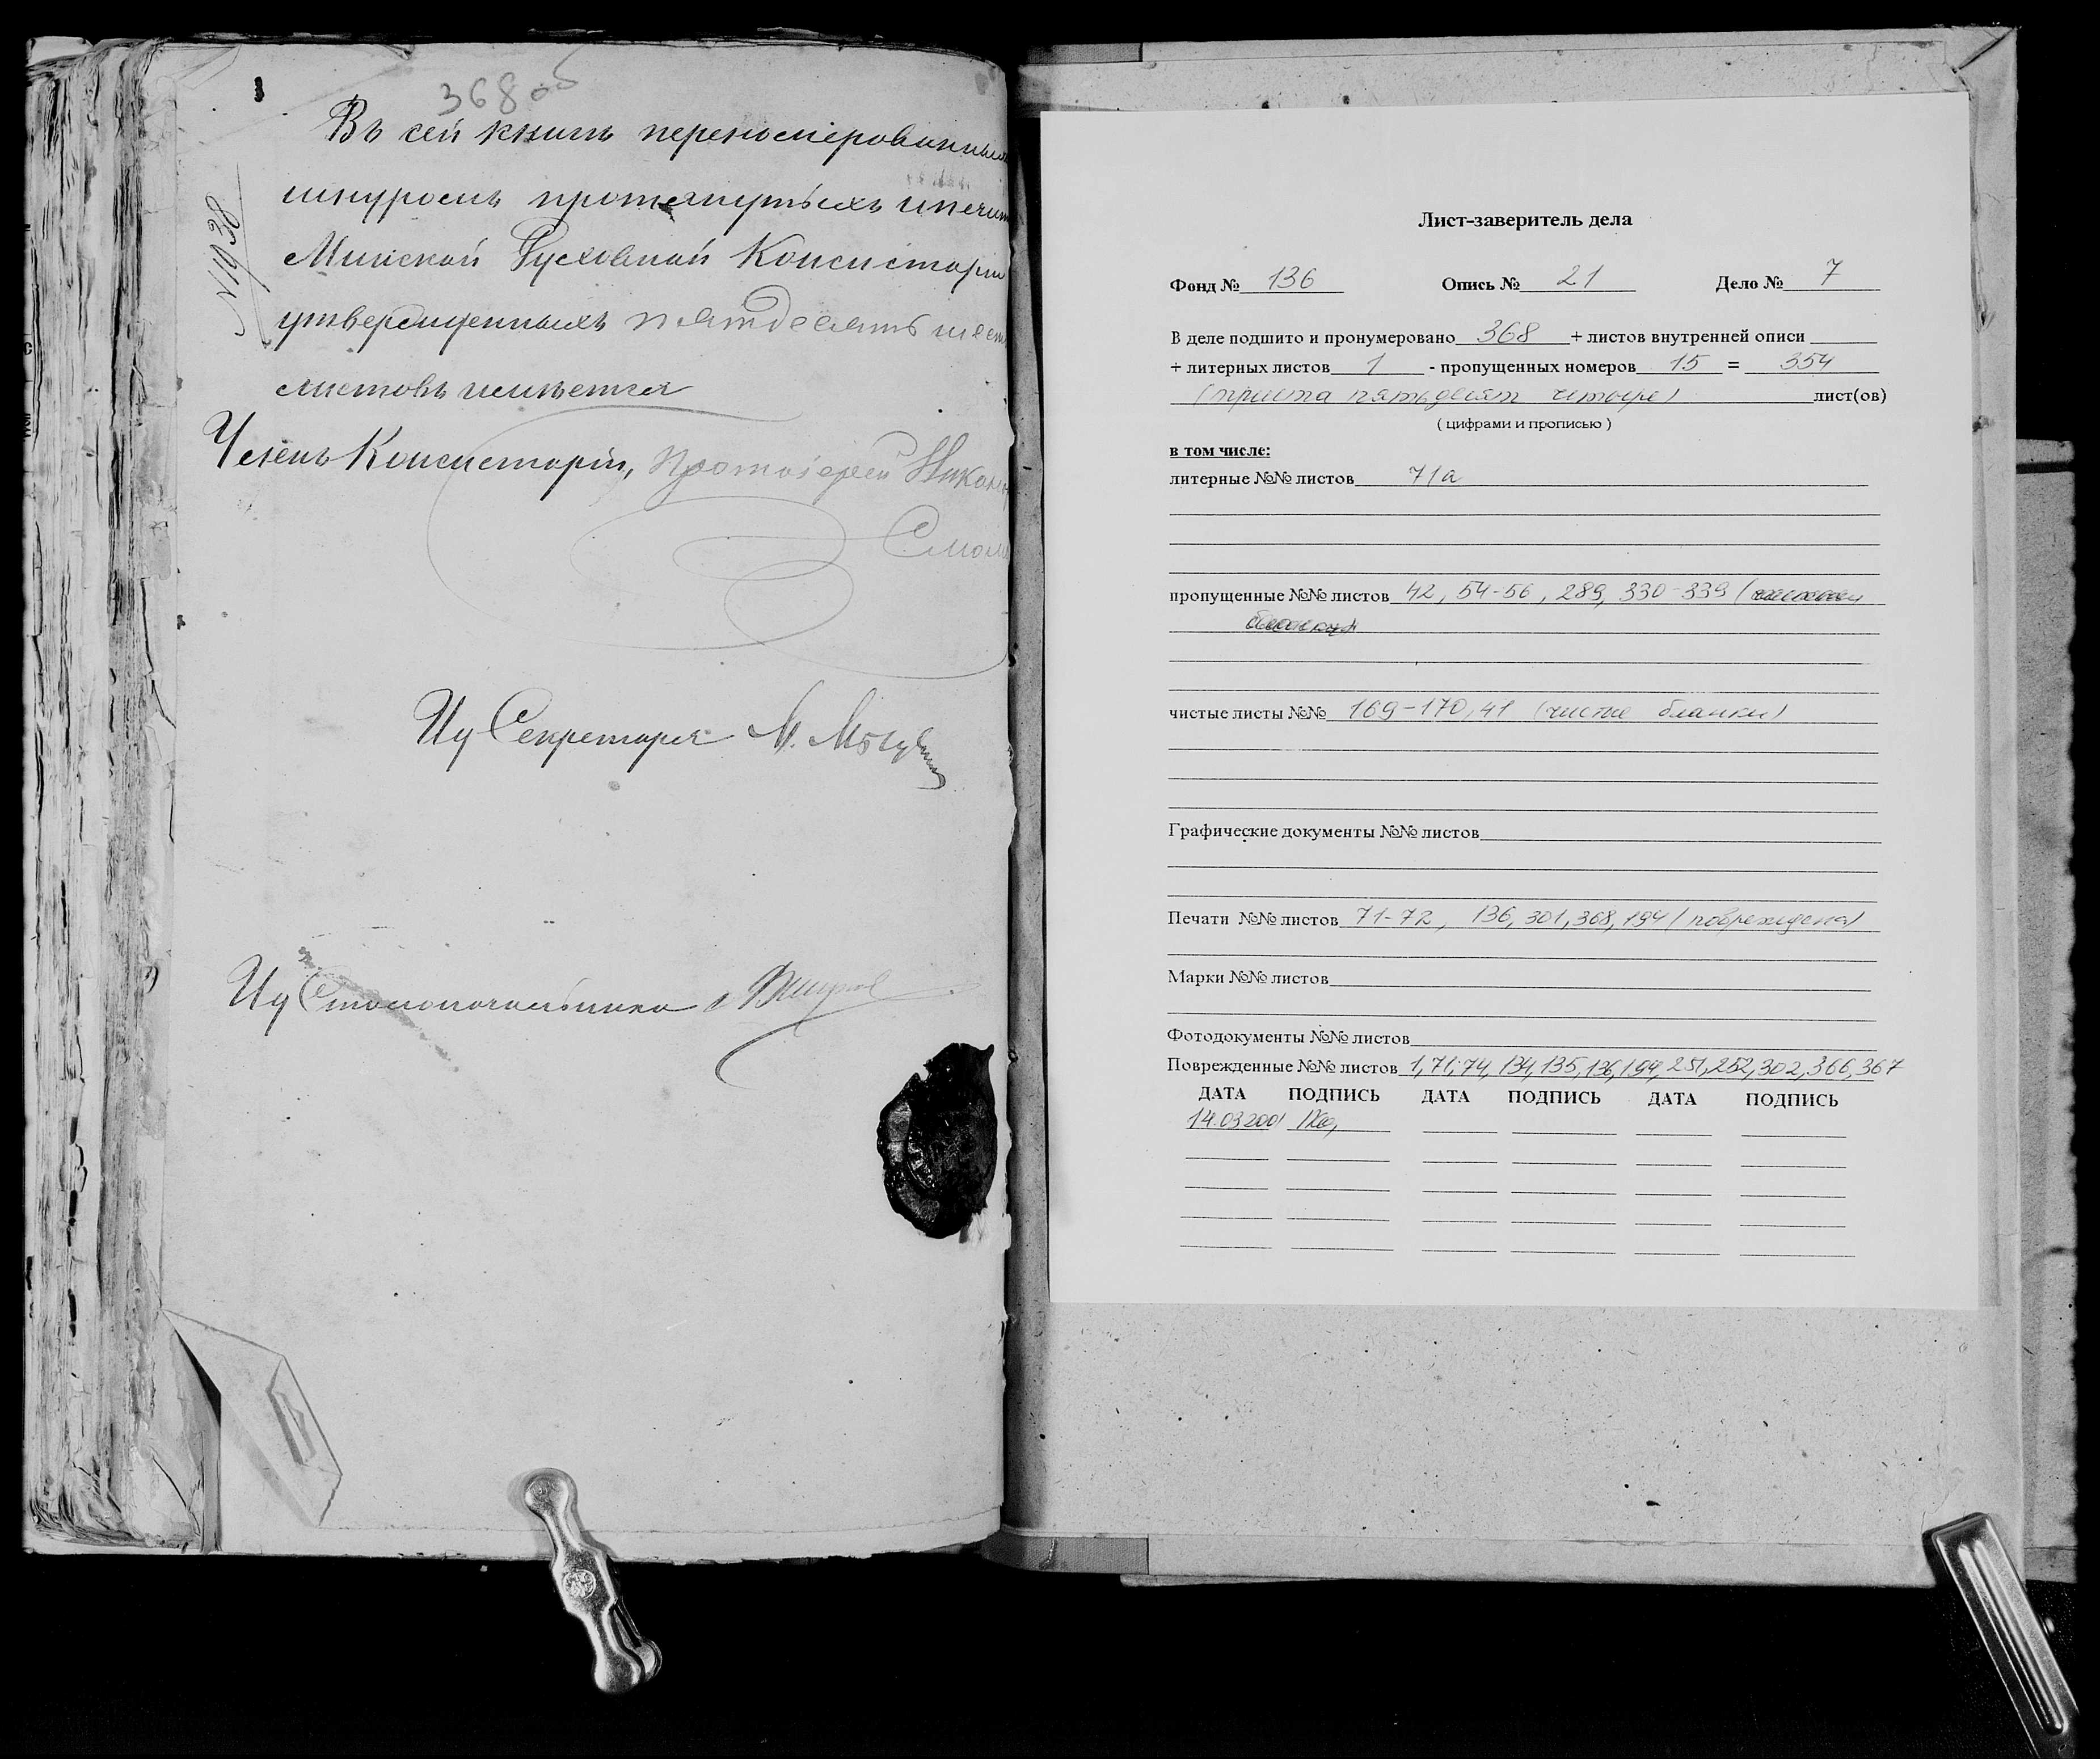 368 об
Въ сей книгѣ перенумерованныхъ
шнуромъ протянутыхъ и печат
Минской Духовной Консисторіи
утвержденныхъ пятдесятъ шест
листовъ имѣется
№ 1938
Членъ Консисторіи, Протоіерей Никан
Смол
Иц Секретаря М.
Иц Столоначальника
Лист-заверитель дела
Фонд № 136 Опись № 21 Дело № 7
В деле подшито и пронумеровано 368 + листов внутренней описи
+ литерных листов 1 - пропущенных номеров 15 = 354
(триста пятьдесят четыре) лист(ов)
( цифрами и прописью )
в том числе:
литерные №№ листов 71а
пропущенные №№ листов 42, 54-56, 289, 330-339 (
чистые листы №№ 169-170, 41 (чистые бланки)
Графические документы №№ листов
Печати №№ листов 71-72, 136, 301, 368, 194 (повреждена)
Марки №№ листов
Фотодокументы №№ листов
Поврежденные №№ листов 1, 71, 74, 134, 135, 136, 194, 251, 252, 302, 366, 367
ДАТА ПОДПИСЬ ДАТА ПОДПИСЬ ДАТА ПОДПИСЬ
14.03.2001